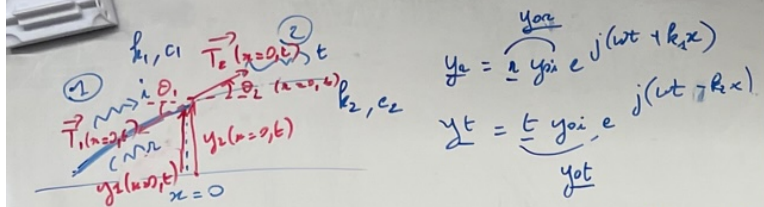 ② 
k₁, c₁ T⃗₂ (x=0,t) t
① i θ₁ θ₂ (x=0, t)
k₂, c₂
T⃗₁(x=0,t)
r
y₂(x=0,t)
y₁(x=0,t)
x = 0
y₀r
y_r = r y₀i e^{j(ωt + k₁x)}
y_t = t y₀i e^{j(ωt - k₂x)}
y₀t